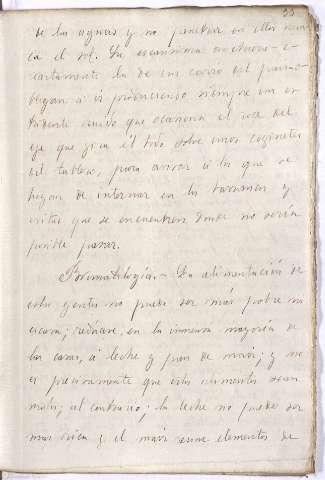 33
de las aguas y no penetrar en ellas nunca
ca el sol. Su economía
exactamente la de un carro del país
obligan a ir produciendo siempre un es
tridente ruido que ocasiona el roce del
eje que gira el todo sobre unos coginetes
del tablero, para avisar a los que se
hayan de internar en los barrancos y
evitar que se encuentren donde no sería
posible pasar.
Bromatología.- La alimentación de
estas gentes no puede ser más pobre ni
escasa; redúcese, en la inmensa mayoría de
los casos, a leche y pan de maíz; y no
es precisamente que estos alimentos sean
malos; al contrario; la leche no puede ser
más rica y el maíz reune elementos de